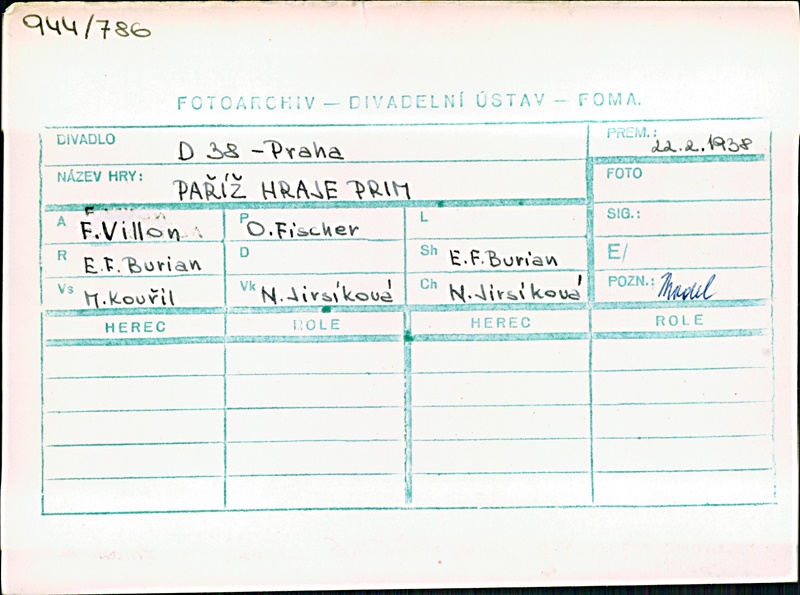 944/786
FOTOARCHIV — DIVADELNÍ ÚSTAV — FOMA.
DIVADLO D 38 - Praha PREM.: 22.2.1938
NÁZEV HRY: PAŘÍŽ HRAJE PRIM FOTO
A F. Villon P O. Fischer L SIG.:
R E.F. Burian D Sh E.F. Burian E/
Vs M. Kouřil Vk N. Jirsíková Ch N. Jirsíková POZN.: Model
HEREC ROLE HEREC ROLE